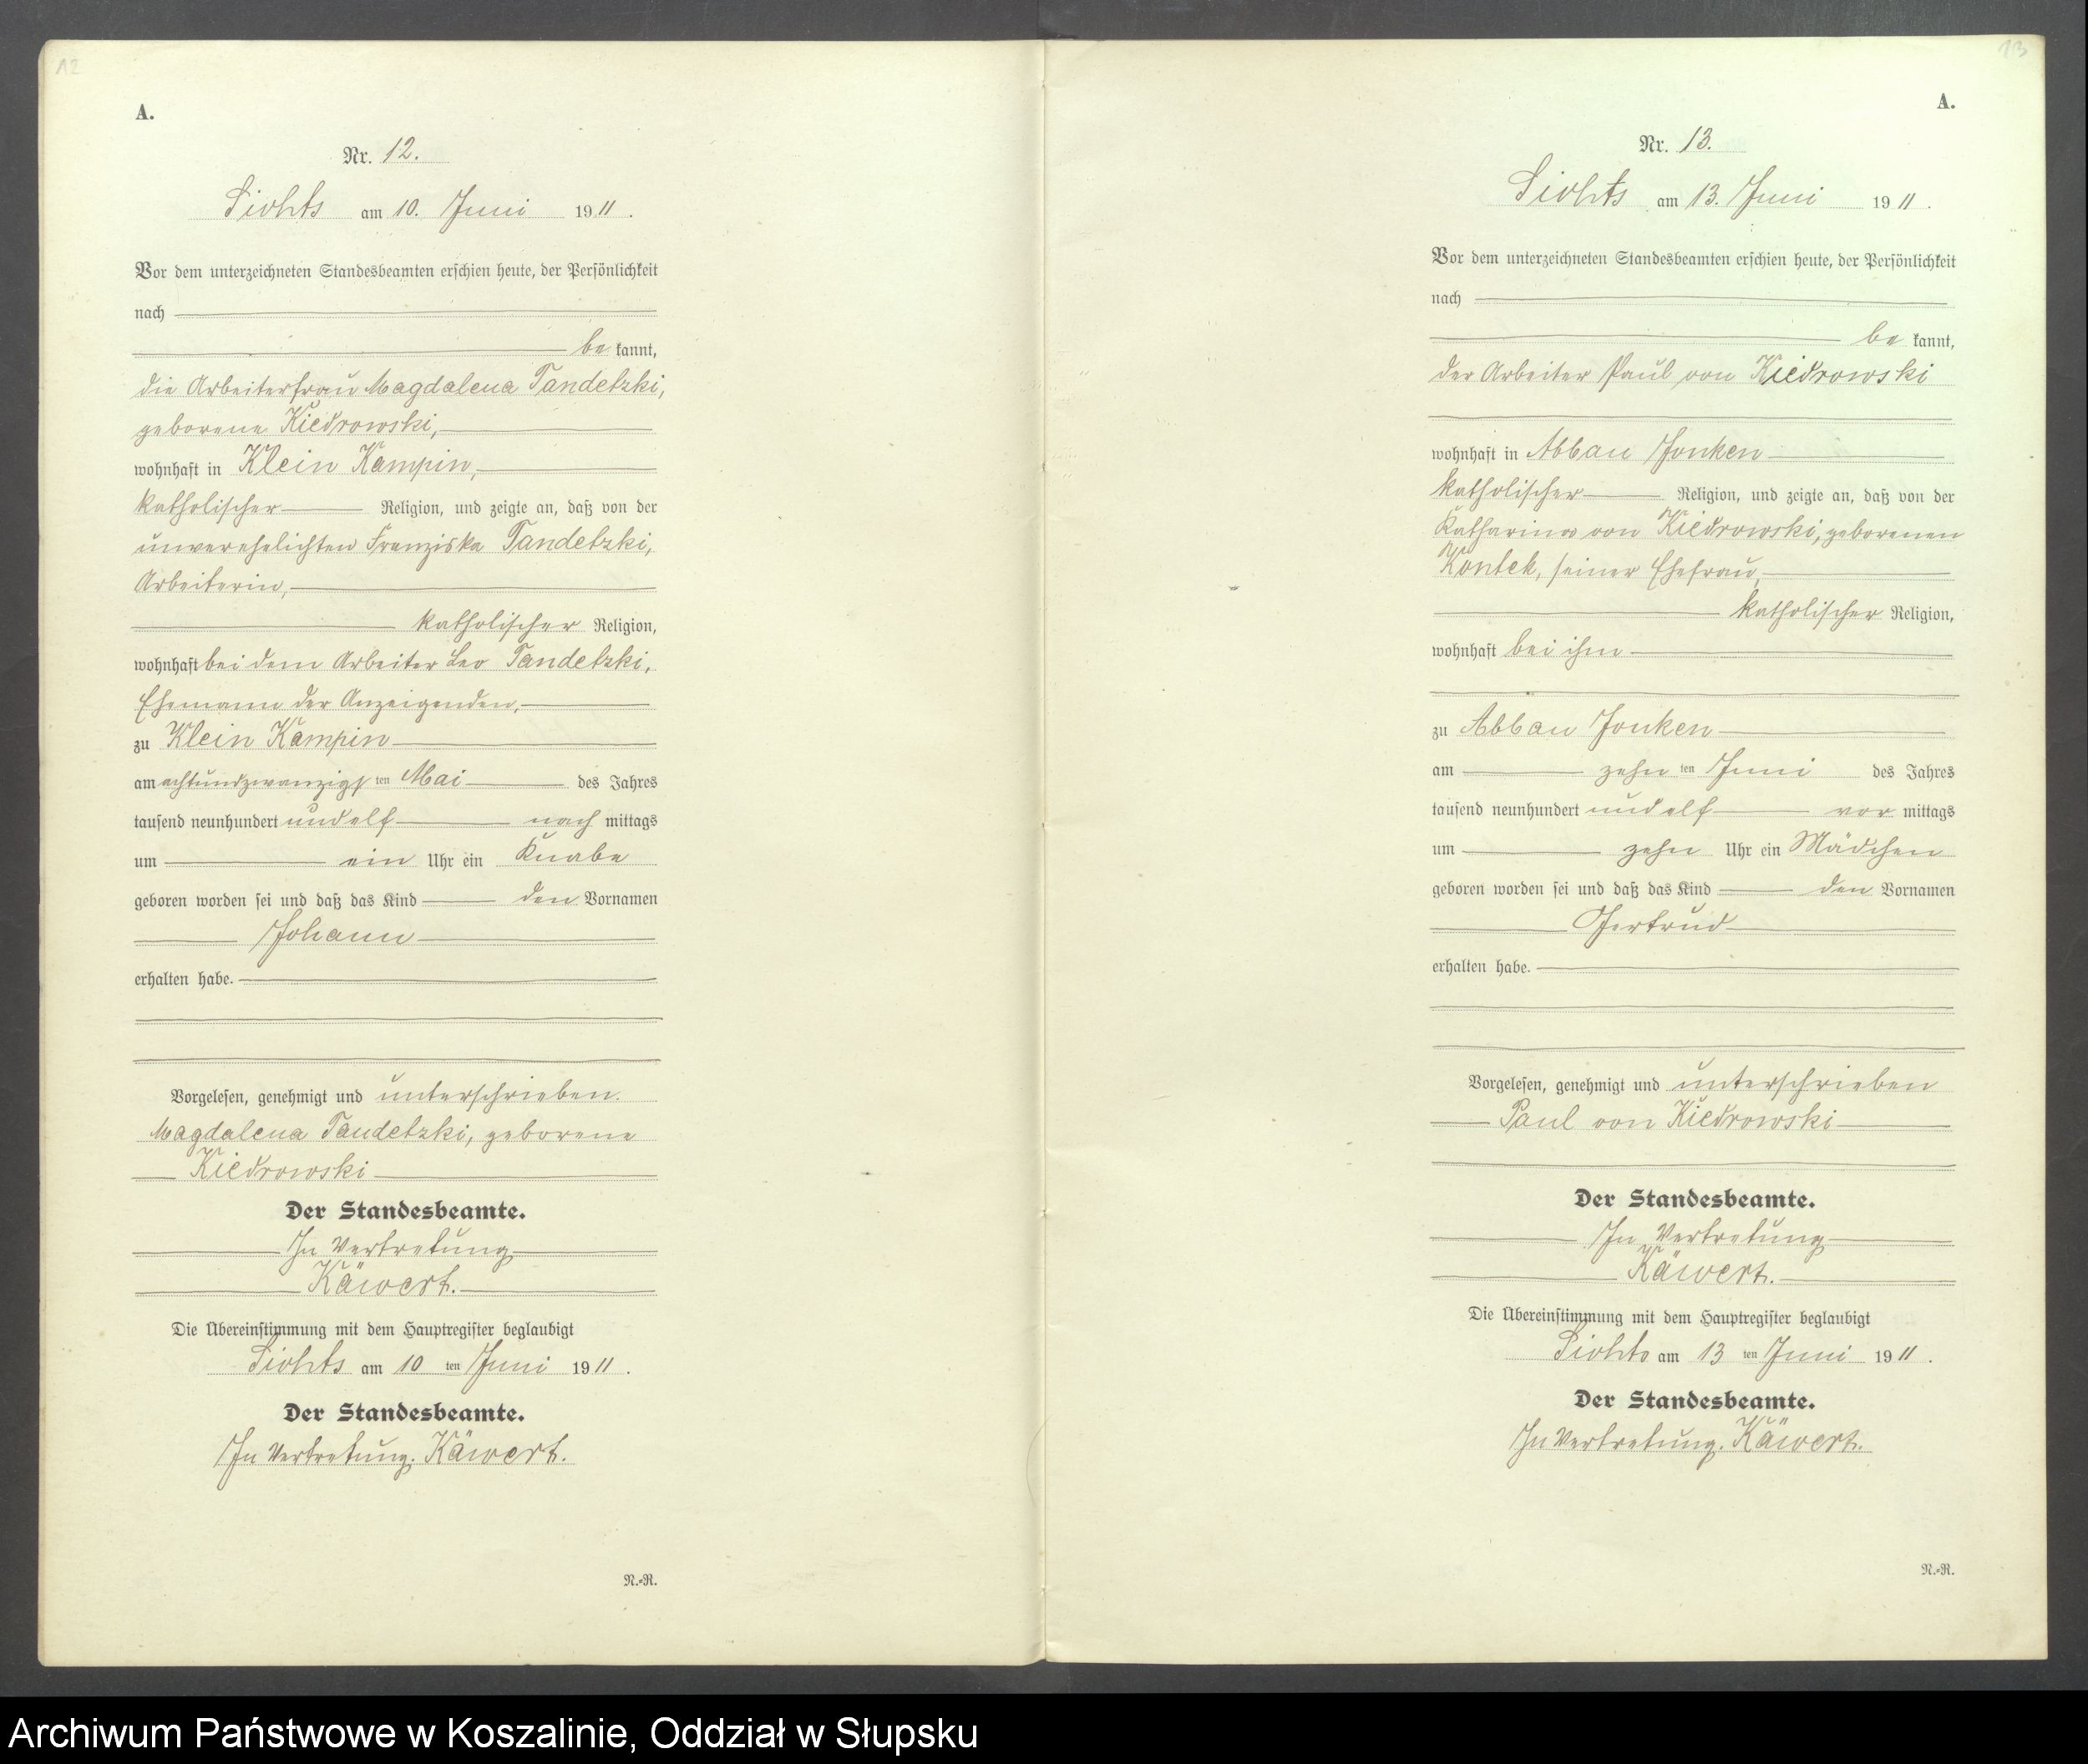 12
A.
Nr. 12.
Liohts am 10. Juni 1911.
Vor dem unterzeichneten Standesbeamten erschien heute, der Persönlichkeit
nach
be kannt,
die Arbeiterfrau Magdalena Tandetzki,
geborene Kiedrowski,
wohnhaft in Klein Kampin,
katholischer Religion, und zeigte an, daß von der
unverehelichten Franziska Tandetzki,
Arbeiterin,
katholischer Religion,
wohnhaft bei dem Arbeiter Leo Tandetzki,
Ehemann der Anzeigenden,
zu Klein Kampin
am achtundzwanzigsten Mai des Jahres
tausend neunhundert und elf nach mittags
um ein Uhr ein Knabe
geboren worden sei und daß das Kind den Vornamen
Johann
erhalten habe.
Vorgelesen, genehmigt und unterschrieben.
Magdalena Tandetzki, geborene
Kiedrowski
Der Standesbeamte.
In Vertretung
Käwert.
Die Übereinstimmung mit dem Hauptregister beglaubigt
Liohts am 10 ten Juni 1911.
Der Standesbeamte.
In Vertretung. Käwert.
N.=R.
13
A.
Nr. 13.
Liohts am 13. Juni 1911.
Vor dem unterzeichneten Standesbeamten erschien heute, der Persönlichkeit
nach
be kannt,
der Arbeiter Paul von Kiedrowski
wohnhaft in Abbau Jonken
katholischer Religion, und zeigte an, daß von der
Katharina von Kiedrowski, geborenen
Kontek, seiner Ehefrau,
katholischer Religion,
wohnhaft bei ihm
zu Abbau Jonken
am zehn ten Juni des Jahres
tausend neunhundert und elf vor mittags
um zehn Uhr ein Mädchen
geboren worden sei und daß das Kind den Vornamen
Gertrud
erhalten habe.
Vorgelesen, genehmigt und unterschrieben
Paul von Kiedrowski
Der Standesbeamte.
In Vertretung
Käwert.
Die Übereinstimmung mit dem Hauptregister beglaubigt
Liohts am 13 ten Juni 1911.
Der Standesbeamte.
In Vertretung. Käwert.
N.=R.
Archiwum Państwowe w Koszalinie, Oddział w Słupsku